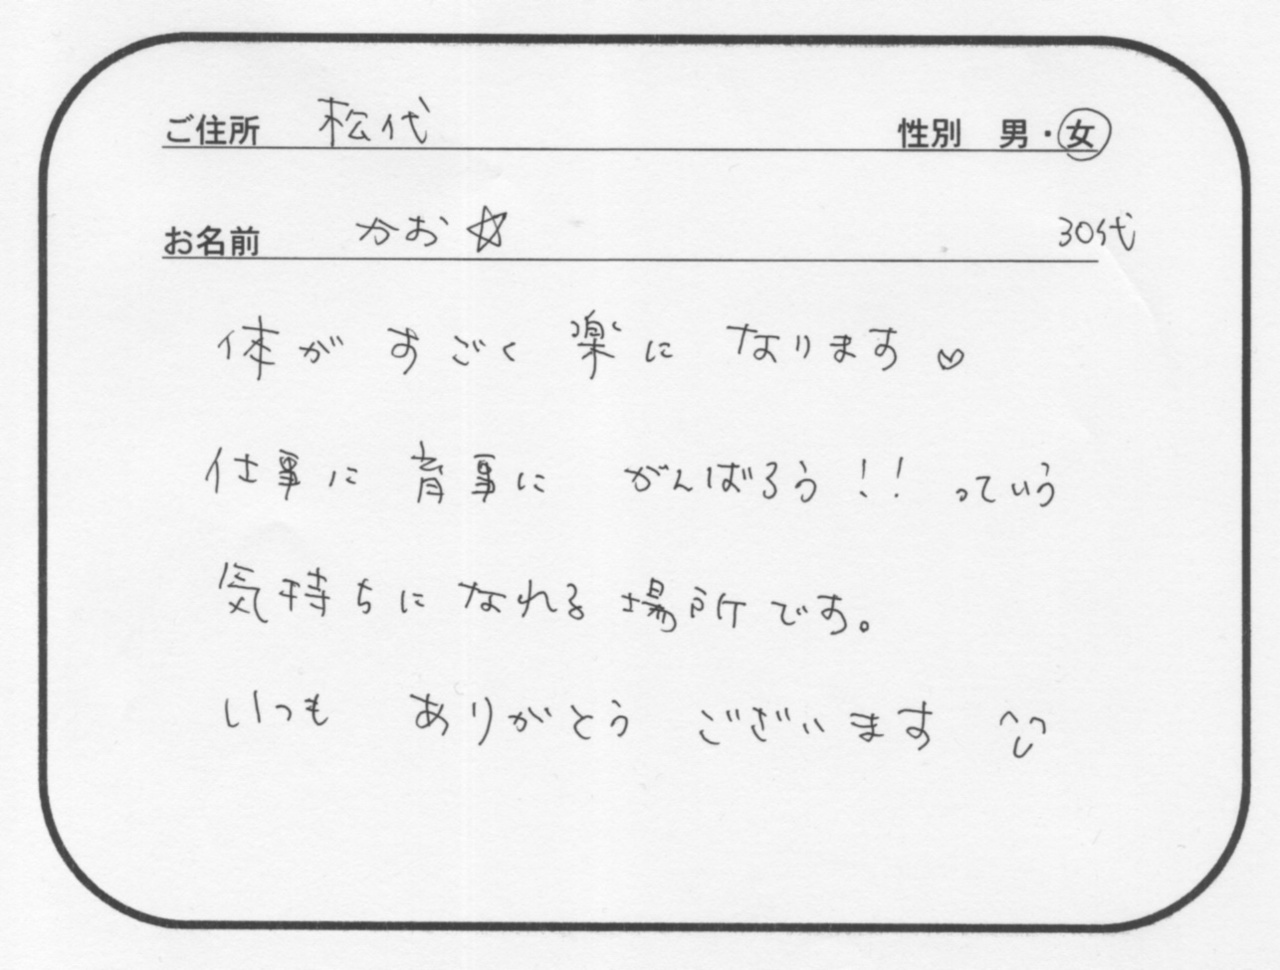 ご住所 松代 性別 男・女
お名前 かお☆ 30代
体がすごく楽になります♡
仕事に育事にがんばろう!!っていう
気持ちになれる場所です。
いつもありがとうございます